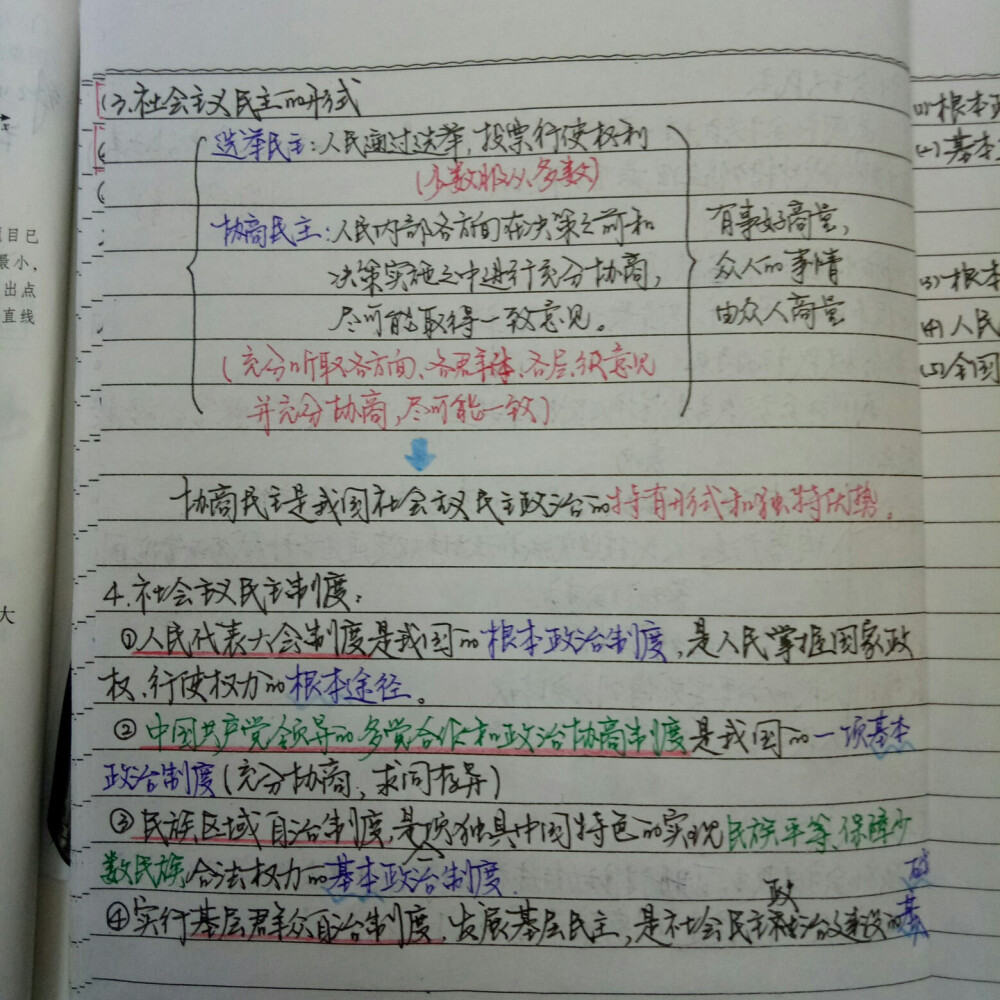 3.社会主义民主的形式
选举民主:人民通过选举,投票行使权利
(少数服从多数)
协商民主:人民内部各方面在决策之前和
决策实施之中进行充分协商,
尽可能取得一致意见。
(充分听取各方面、各群体、各层级意见
并充分协商,尽可能一致)
有事好商量,
众人的事情
由众人商量
协商民主是我国社会主义民主政治的特有形式和独特优势。
4.社会主义民主制度:
①人民代表大会制度是我国的根本政治制度,是人民掌握国家政
权、行使权力的根本途径。
②中国共产党领导的多党合作和政治协商制度是我国的一项基本
政治制度(充分协商,求同存异)
③民族区域自治制度,是一项独具中国特色的实现民族平等、保障少
数民族合法权力的基本政治制度.
④实行基层群众自治制度,发展基层民主,是社会民主政治建设的基
目已
最小,
出点
直线
大
(1)基本
(3)根本
(4)人民
(5)全国